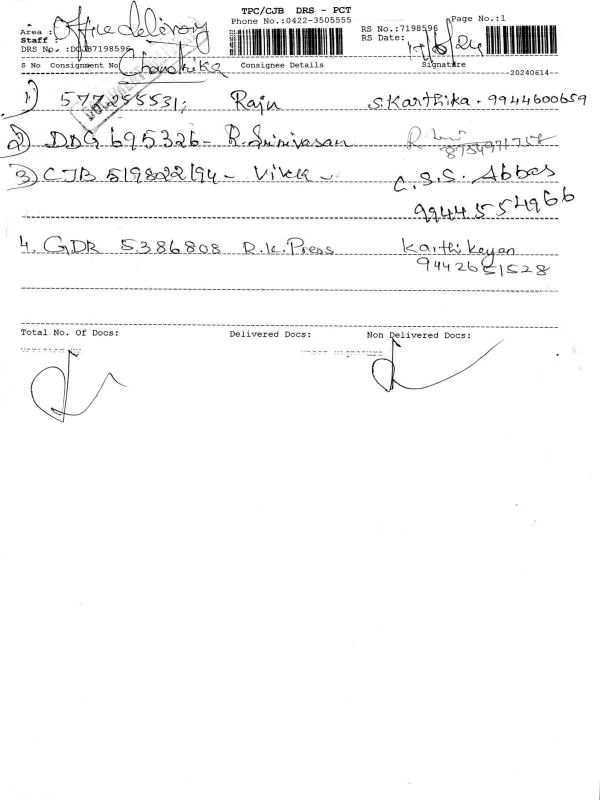 TPC/CJB DRS - PCT
Phone No.:0422-3505555
Page No.:1
Area : Office delivery
Staff :
DRS No. :DCJB7198596
RS No.:7198596
RS Date: 17/6/24
S No Consignment No Consignee Details Signature
Chandrika
20240614
1) 577255531; Raju S.Karthika. 9944600659
2) DDG 695326 - R.Srinivasan
3) CJB 519822194 - Vivek - C.S.S. Abbas
9944554966
4. GDR 5386808 R.K.Press Karthikeyan
9442651528
Total No. Of Docs: Delivered Docs: Non Delivered Docs: